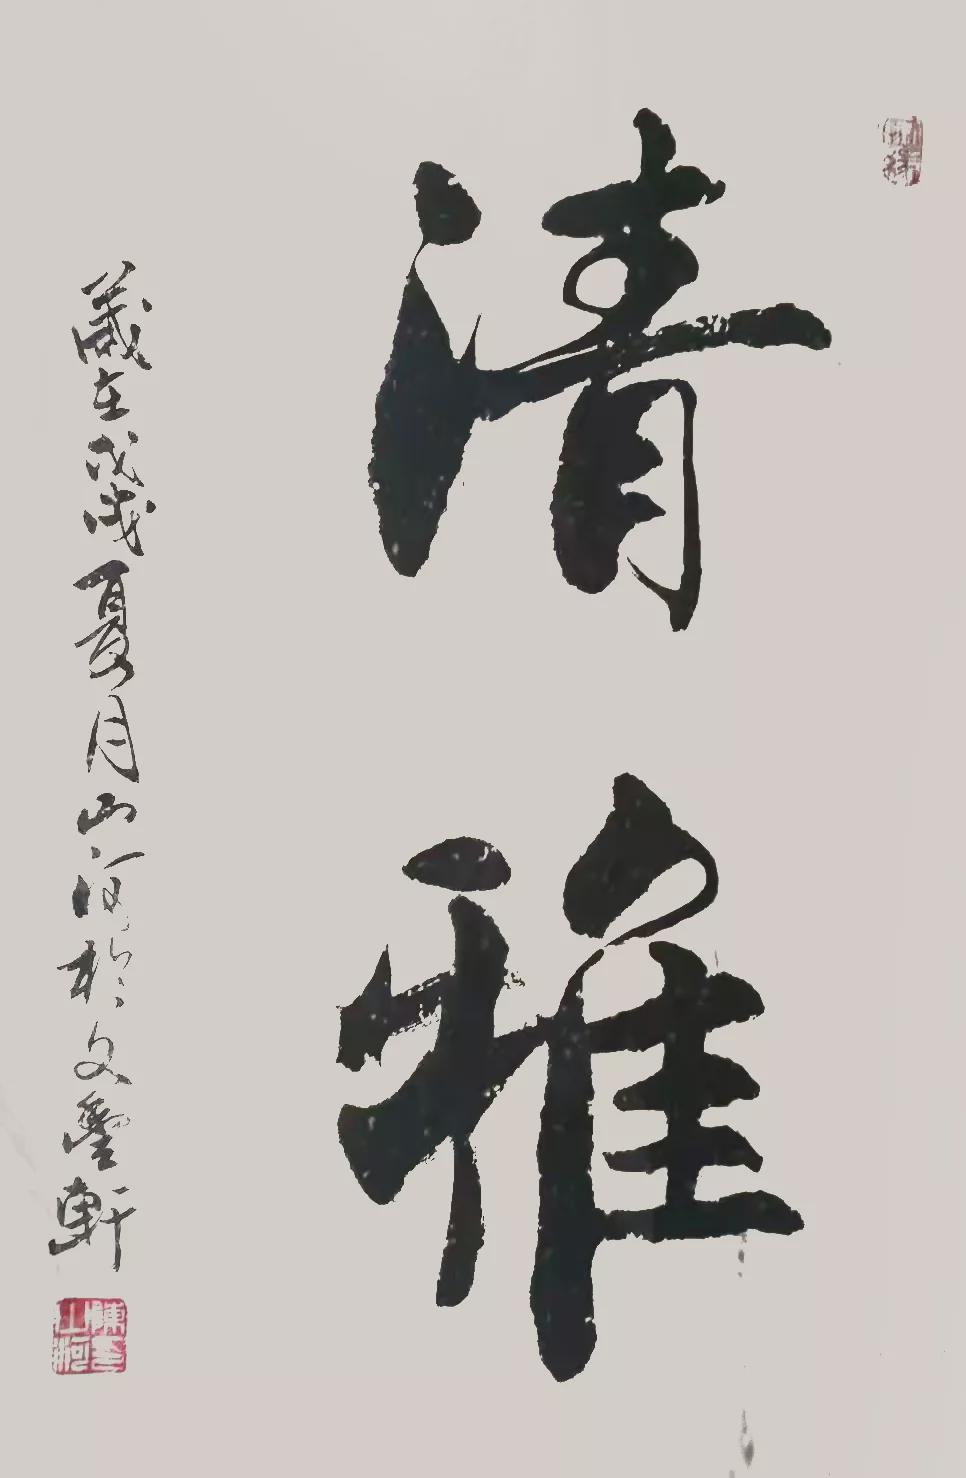 清雅
岁在戊戌夏月山河於文墨軒